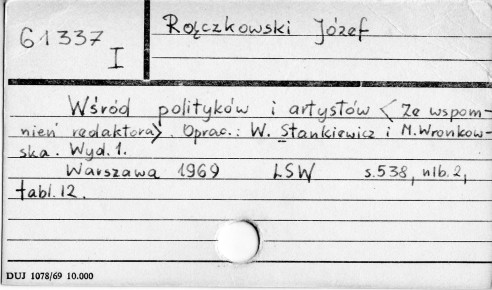 61337
I
Rączkowski Józef
Wśród polityków i artystów <Ze wspom-
nień redaktora>. Oprac.: W. Stankiewicz i M. Wronkow-
ska. Wyd. 1.
Warszawa 1969 LSW s. 538, nlb. 2,
tabl. 12.
DUJ 1078/69 10.000